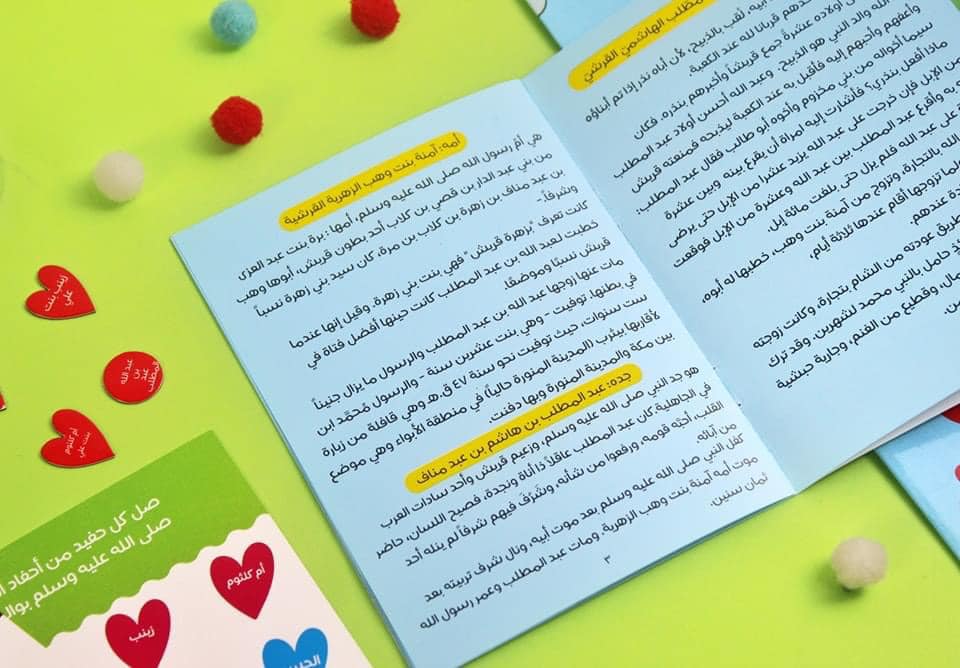 مطلب الهاشمي القرشي
أبيه، لقب بالذبيح، لأن أباه نذر إذا تم أبناؤه
أولاده عشرة جمع قريشاً وأخبرهم بنذره. فكان
الله والد النبي هو الذبيح. وعبد الله أحسن أولاد عبد المطلب
وأعفهم وأحبهم إليه فأقبل به عند الكعبة ليذبحه فمنعته قريش
سيما أخواله من بني مخزوم وأخوه أبو طالب فقال عبد المطلب:
ماذا أفعل بنذري؟ فأشارت إليه امرأة أن يقرع بينه وبين عشرة
من الإبل فإن خرجت على عبد الله يزيد عشرا من الإبل حتى يرضى
به وأقرع عبد المطلب بين عبد الله وعشرة من الإبل فوقعت
على عبد الله فلم يزال حتى بلغت مائة إبل.
بالتجارة، وتزوج من آمنة بنت وهب، خطبها له أبوه،
تزوجها أقام عندها ثلاثة أيام،
عندهم.
طريق عودته من الشام بتجارة، وكانت زوجته
حامل بالنبي محمد لشهرين. وقد ترك
وقطيع من الغنم، وجارية حبشية
أمه: آمنة بنت وهب الزهرية القرشية
هي أم رسول الله صلى الله عليه وسلم، أمها: برة بنت عبد العزى
من بني عبد الدار بن قصي بن كلاب أحد بطون قريش، أبوها وهب
بن عبد مناف بن زهرة بن كلاب بن مرة، كان سيد بني زهرة نسباً
وشرفاً.-
كانت تعرف "بزهرة قريش" فهي بنت بني زهرة. وقيل إنها عندما
خطبت لعبد الله بن عبد المطلب كانت حينها أفضل فتاة في
قريش نسبًا وموضعًا.
مات عنها زوجها عبد الله بن عبد المطلب والرسول ما يزال جنيناً
في بطنها. توفيت - وهي بنت عشرين سنة - والرسول مُحمَّد ابن
ست سنوات، حيث توفيت نحو سنة ٤٧ ق.هـ وهي قافلة من زيارة
لأقاربها بيثرب (المدينة المنورة حالياً) في منطقة الأبواء وهي موضع
بين مكة والمدينة المنورة وبها دفنت.
جده: عبد المطلب بن هاشم بن عبد مناف
هو جد النبي صلى الله عليه وسلم، وزعيم قريش وأحد سادات العرب
في الجاهلية كان عبد المطلب عاقلاً ذا أناة ونجدة، فصيح اللسان، حاضر
القلب، أحبّه قومه، ورفعوا من شأنه، وشَرُفَ فيهم شرفاً لم ينله أحد
من آبائه
كفل النبي صلى الله عليه وسلم بعد موت أبيه، ونال شرف تربيته بعد
موت أمه آمنة بنت وهب الزهرية. ومات عبد المطلب وعمر رسول الله
ثمان سنين.
٣
زينب بنت
علي
عبد الله
بن
عبد
المطلب
أم كلثوم
بنت علي
صل كل حفيد من أحفاد
صلى الله عليه وسلم
أم كلثوم
زينب